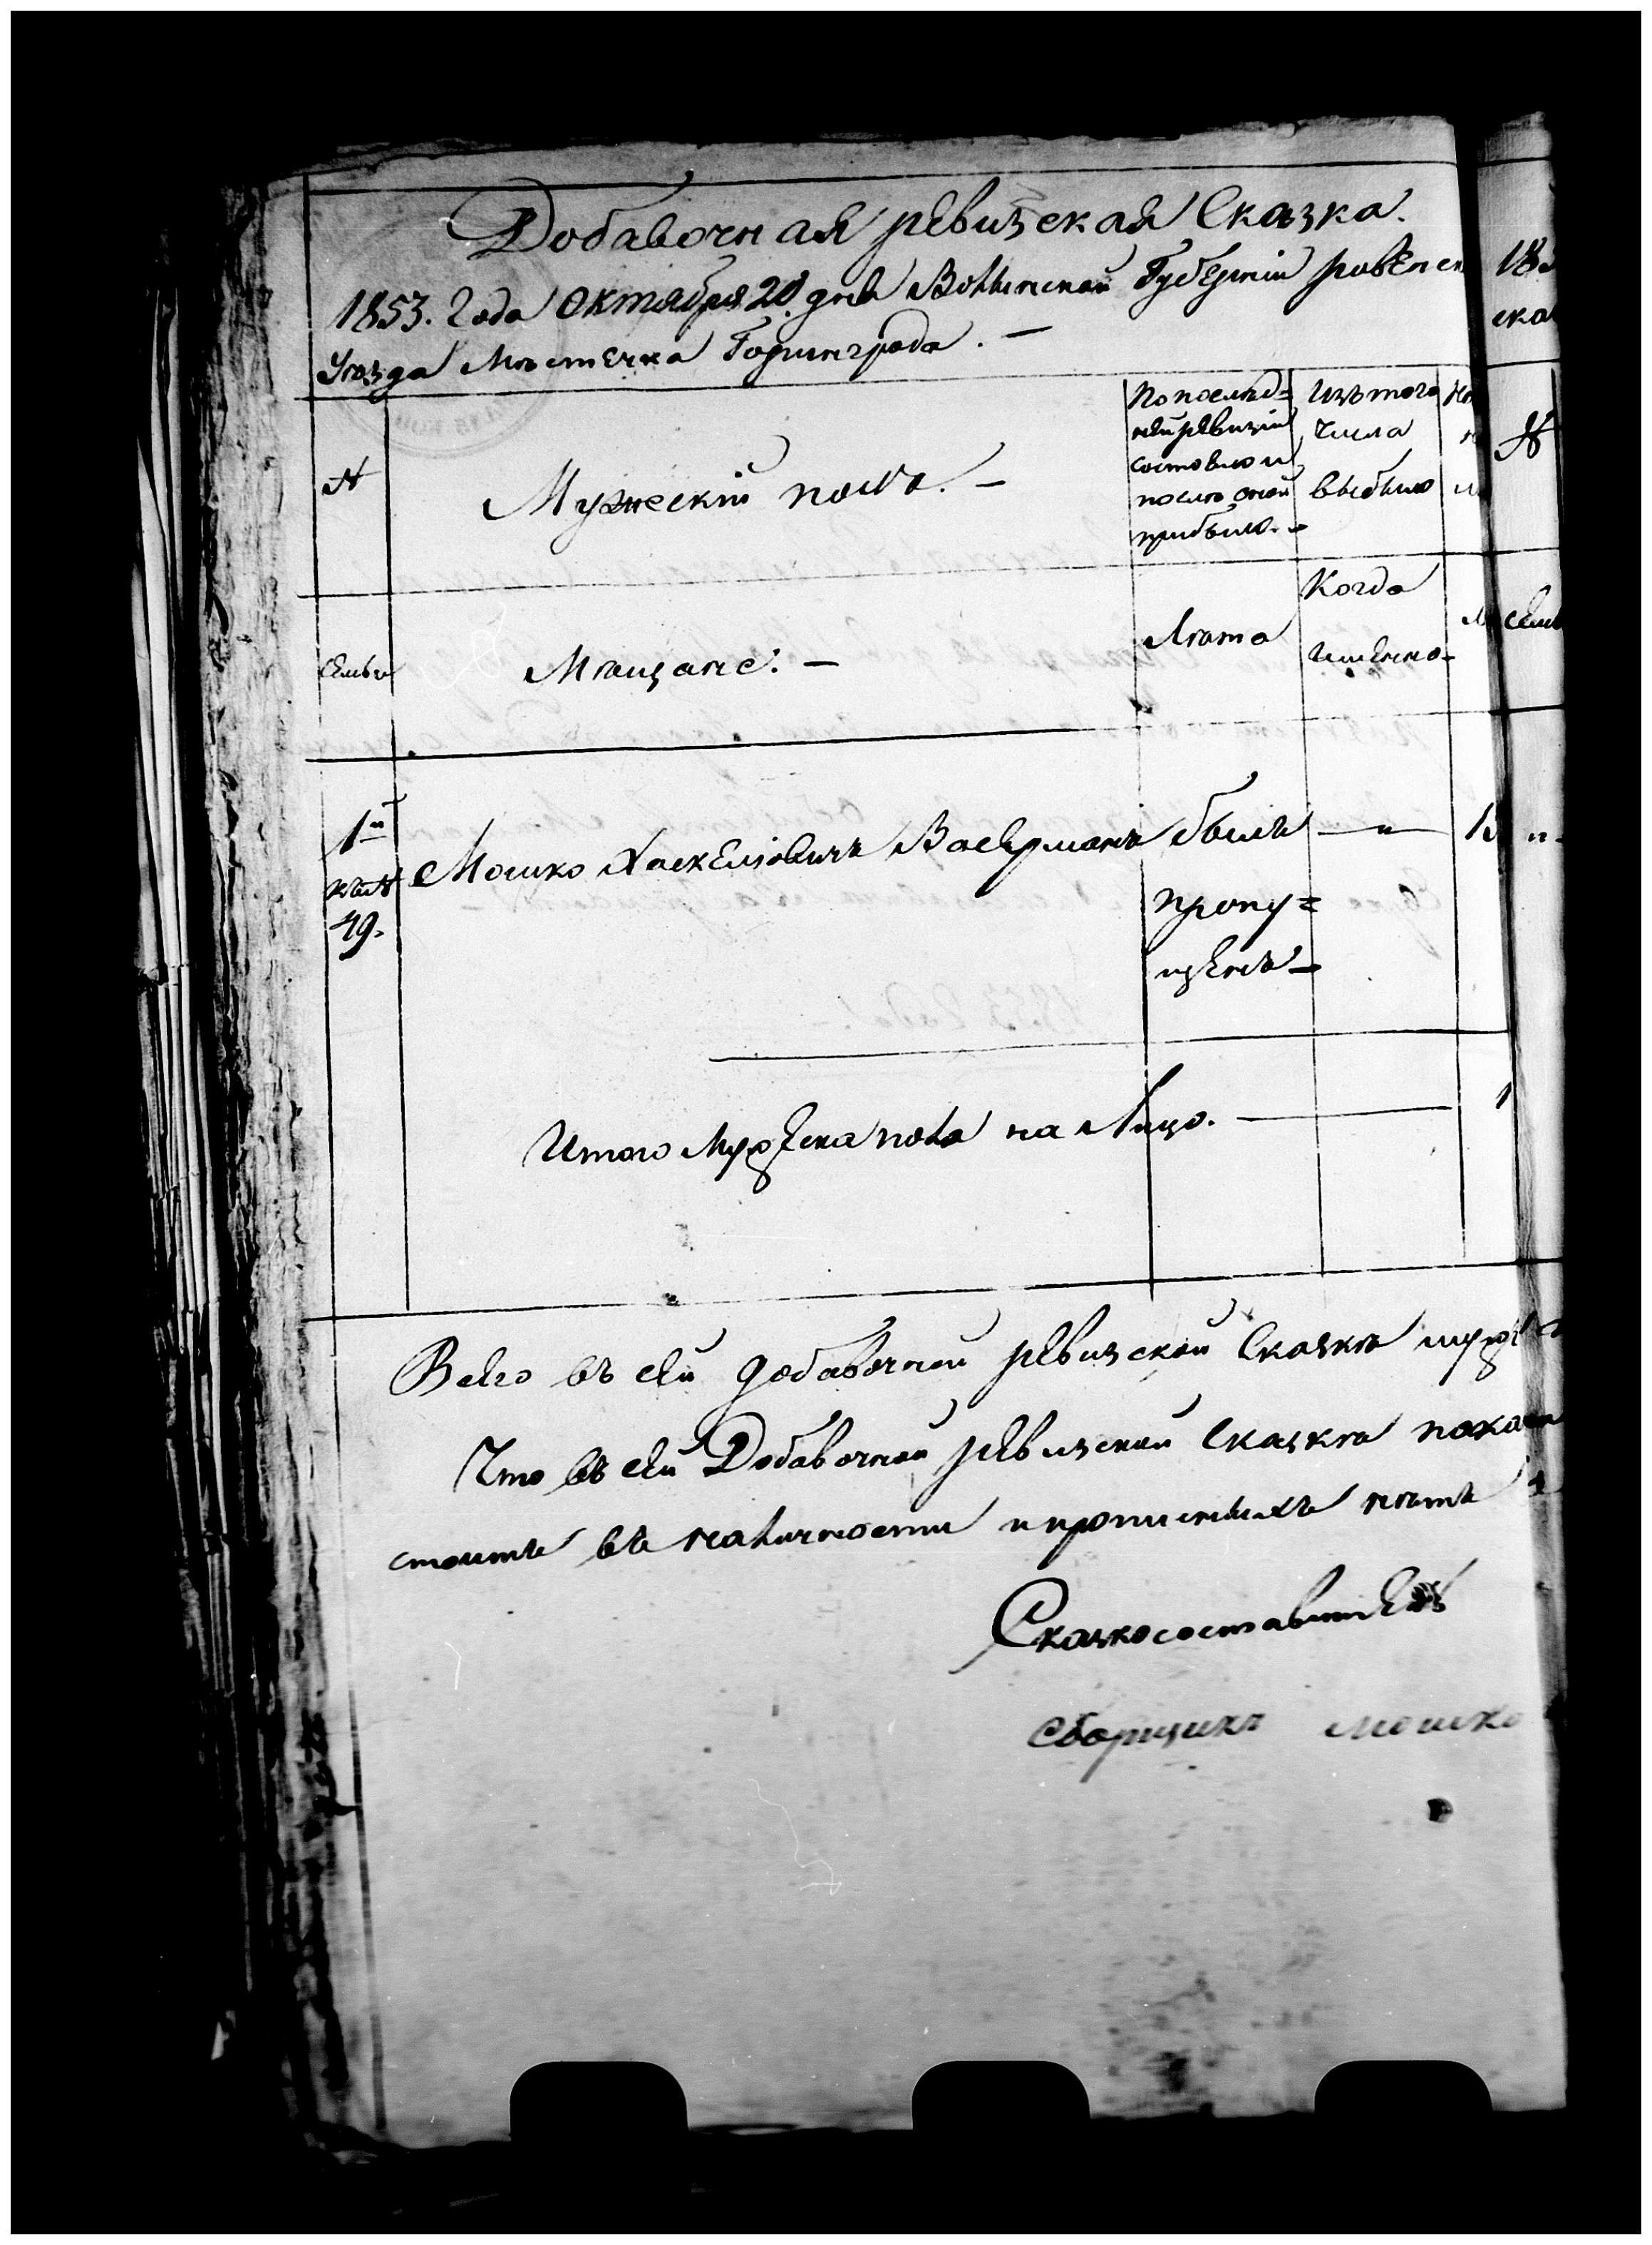 Добавочная ревизская Сказка.
1853. Года Октября 20 дня Волынской Губерніи ровенск
Уѣзда Мѣстечка Горинграда. —
№
Мужескій полъ. —
По послѣд=
ней ревизіи
состояло и
послѣ оной
прибыло. —
Изъ того
числа
выбыло
Семьи
Мѣщане. —
Лѣта
Когда
именно —
1й
къ №
49.
Мошко Хаскелiовичъ Васерманъ
былъ
пропу=
щенъ —
— „ —
Итого мужеска пола на Лицо. —
1
Всего въ сей добавочной ревизской Сказкѣ
Что въ сей Добавочной ревизской Сказкѣ
стоитъ въ наличности и прописныхъ нѣтъ
Сказкосоставители
Сборщикъ Мошко
№
18
ска